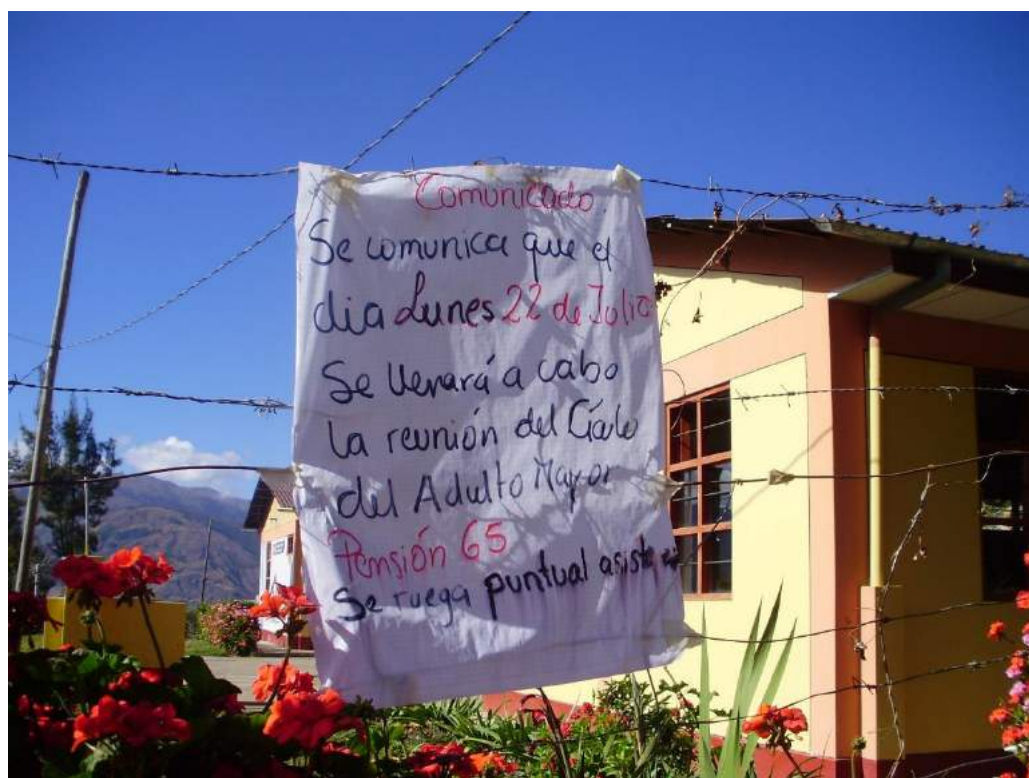 Comunicado
Se comunica que el
dia Lunes 22 de Julio
Se llevará a cabo
la reunión del Círculo
del Adulto Mayor
Pensión 65
Se ruega puntual